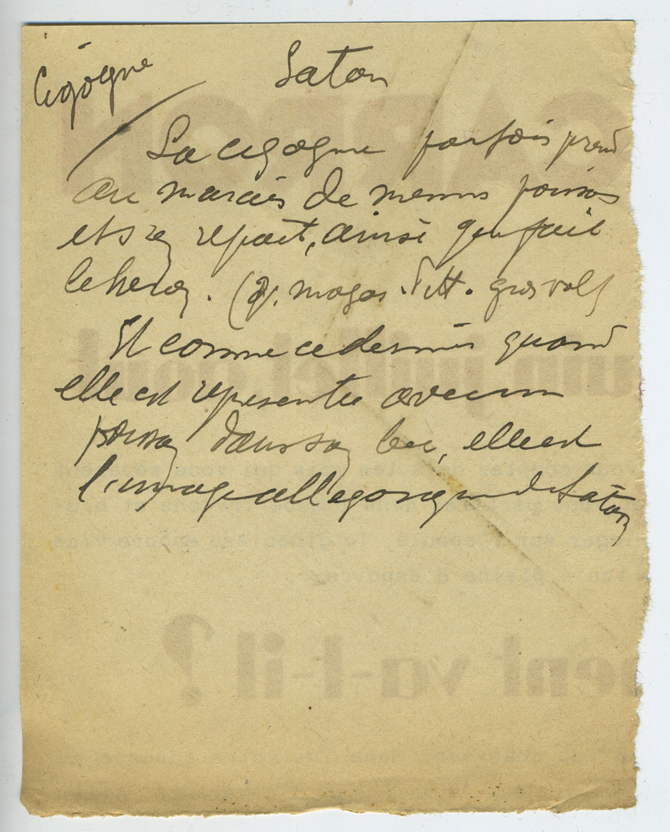 Cigogne
Satan
La cigogne parfois prend
au marais de menus poissons
et s'en repait, ainsi que fait
le heron. (
Et comme ce dernier quand
elle est representée avec un
poisson dans son bec, elle est
l'image allegorique de Satan
ment va-t-il ?